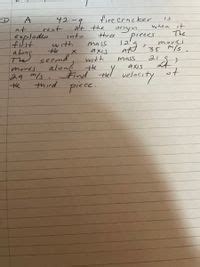 A 42-g firecracker is
at rest at the origin when it
explodes into three pieces. The
first with mass 12 g, moves
along the x axis at 35 m/s.
The second, with mass 21 g,
moves along the y axis at
29 m/s. Find the velocity of
the third piece.